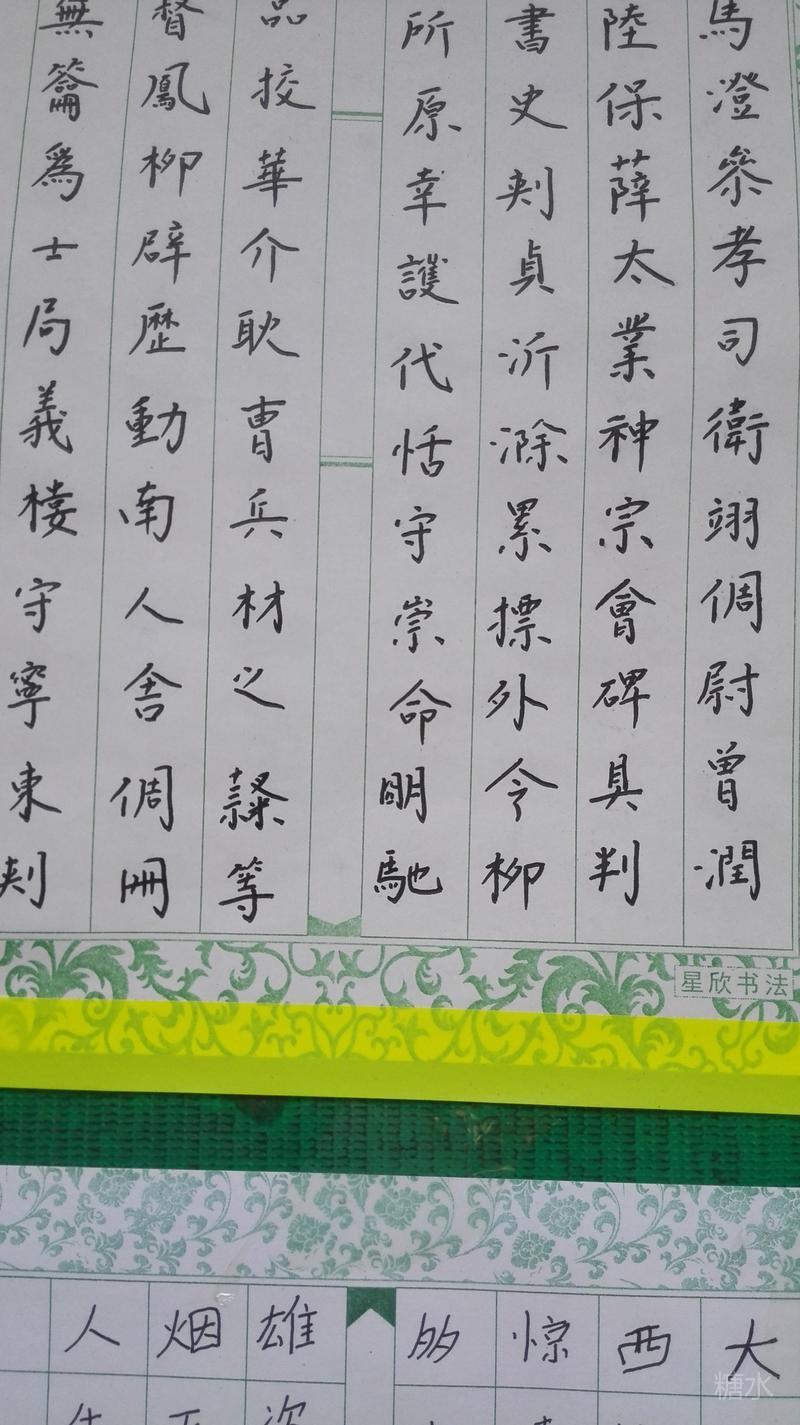 馬澄參孝司衛翊倜尉曾潤
陸保薛太業神宗會碑具判
書史刾貞沂滁累摽外令柳
所原幸護代恬守崇命明馳
品挍華介耿曹兵材之等
督鳳柳辟歷動南人舍倜冊
無籥為士局義棲守寧東刾
星欣书法
大
西
惊
的
雄
烟
人
糖水